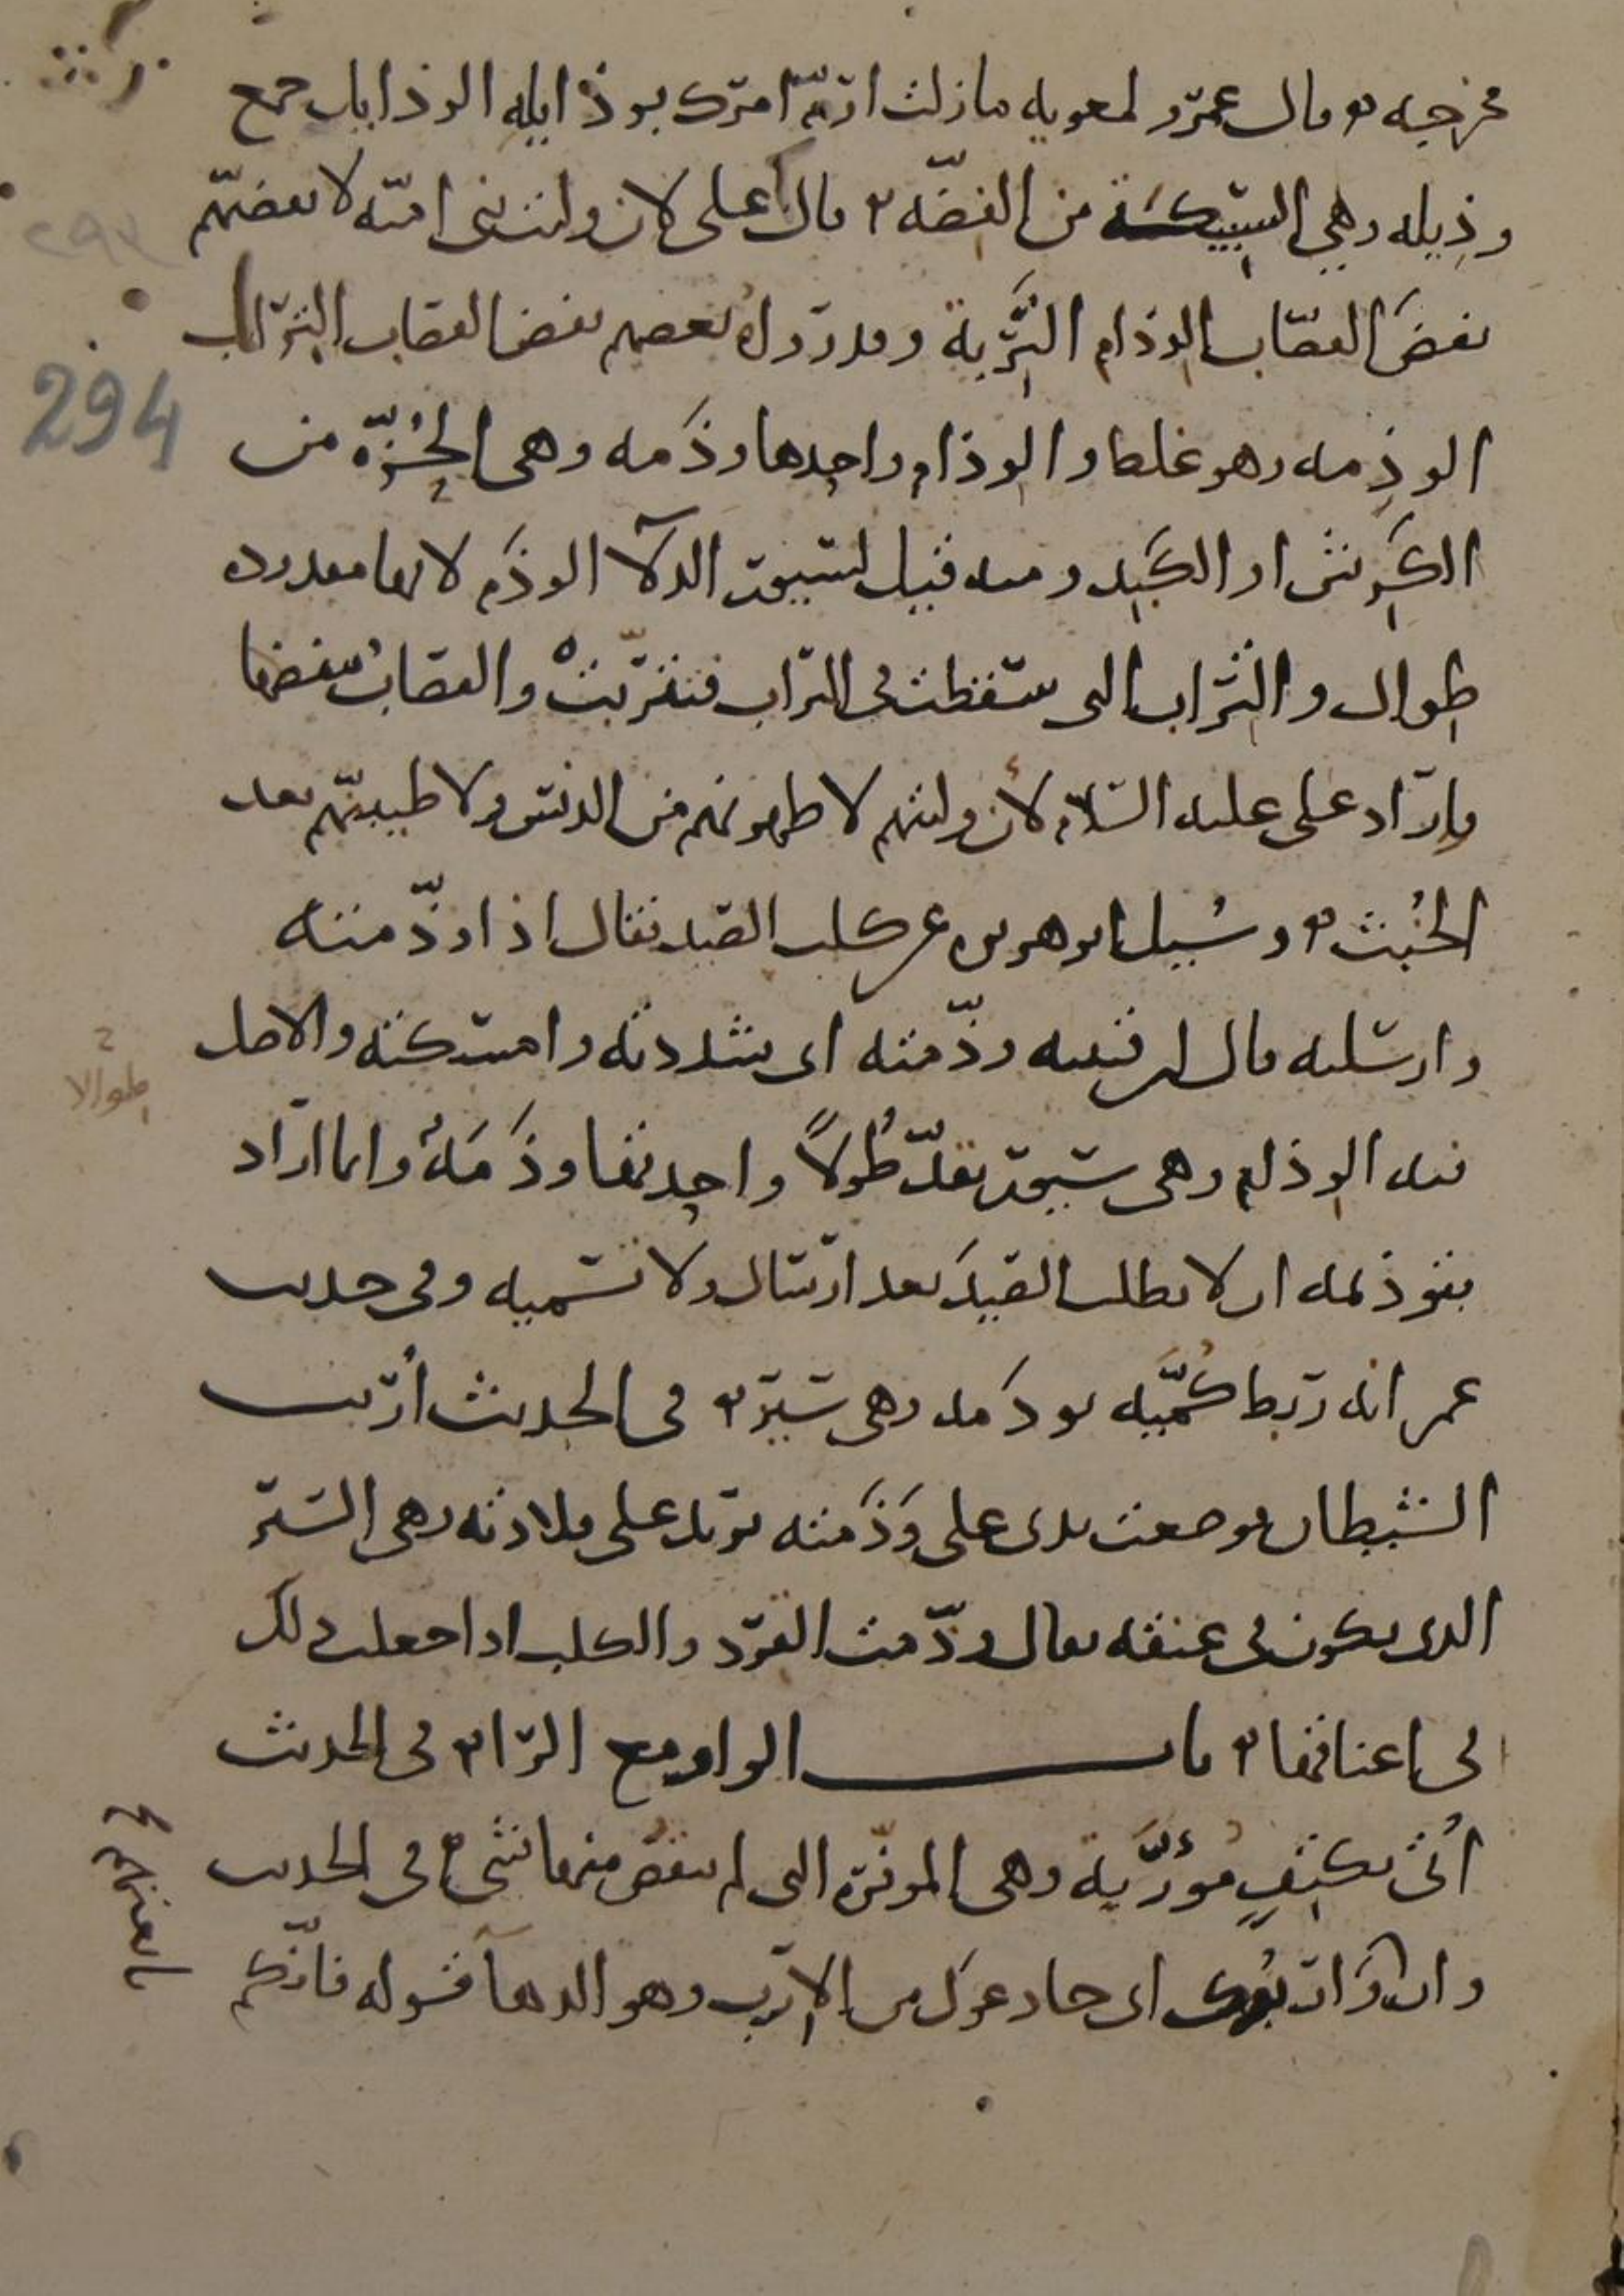 مخرجه ۞ قال عمرو لمعوية ما زلت ارمّ امرك بوذايله الوذايل جمع
وذيله وهي السبيكة من الفضه ۞ قال على لان وليت بنى اميّه لانفضنّهم
نفض القصّاب الوذام التَّرِبة وقد رواه بعضهم نفض القصاب التراب
الوذمه وهو غلط والوذام واحدها وذمه وهى الحُزّه من
الكَرِش او الكَبِد ومنه قيل لسيور الدلآ الوذَم لانها مقدوده
طوال والتراب التى سقطت فى التراب فتترّبتْ والقصاب ينفضها
وارَاد على عليه السلام لأن وليتهم لاطهرنهم من الدنس ولاطيبنّهم بعد
الخُبث ۞ وسُيل ابو هريره عن كلب الصيد فقال اذا وذّمته
وارسلته قال ابن قتيبه وذّمته اى شددته وامسكته والاصل
فيه الوذام وهى سيور تقدّ طُولاً واحدتها وذَمَةٌ وانما اراد
بتوذيمه ان لا يطلب الصيد بعد ارسال ولا تسميه وفى حديث
عمر انه ربط كُمَّيه بوذَمه وهى سير ۞ فى الحديث أُريت
الشيطان فوضعت يدى على وَذَمته يريد على قلادته وهى السير
الذى يكون فى عنقه يقال وذّمت القرد والكلب اذا جعلت ذلك
فى اعناقها ۞ باب الواو مع الرا ۞ فى الحديث
أُتى بكتِفٍ مُؤَرَّبة وهى الموفّرة التى لم ينقص منها شى ۞ فى الحديث
وان وَارَبُوك اى خادعوك من الارب وهو الدهآ قوله فانّكم
294
طوالا